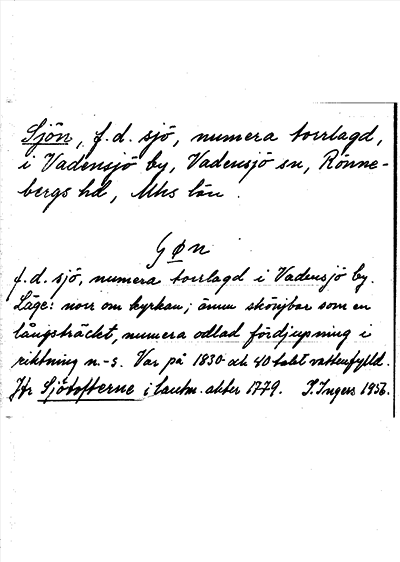 Sjön, f.d. sjö, numera torrlagd,
i Vadensjö by, Vadensjö sn, Rönne-
bergs hd, Mhs län.
f.d. sjö, numera torrlagd i Vadensjö by.
Läge: norr om kyrkan; ännu skönjbar som en
långsträckt, numera odlad fördjupning i
riktning n.-s. Var på 1830- och 40 talet vattenfylld.
Jfr Sjötofterne i lantm. akter 1779. I. Ingers 1956.